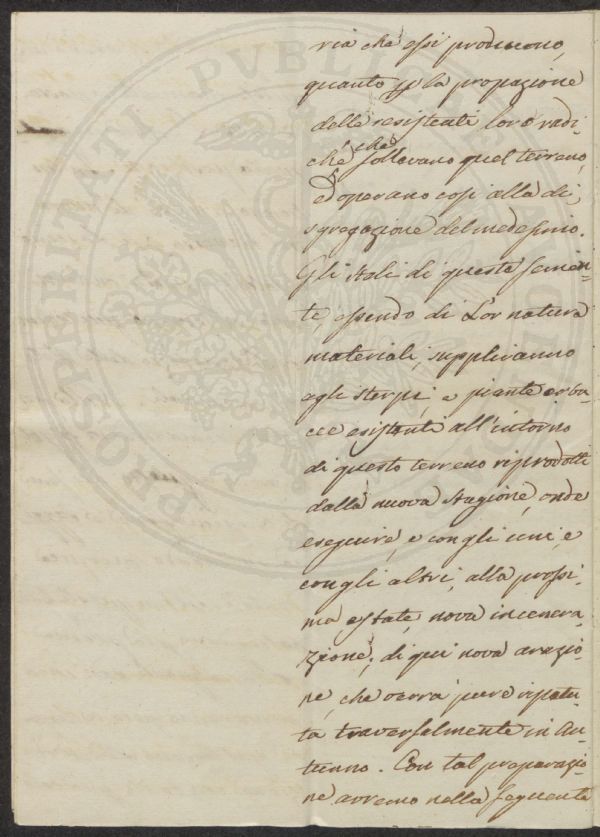 PROSPERITATI PUBLICAE AUGENDAE
ria che essi producono,
quanto p la propazione
delle resistenti loro radi-
che che sollevano quel terreno,
ed operano così alla di,
sgregazione del medesimo.
Gli steli di queste semen-
te, essendo di Lor natura
materiali, suppliranno
agli sterpi, e piante erba-
cee esistenti all'intorno
di questo terreno riprodotti
dalla nuova stagione, onde
eseguire, e con gli uni, e
con gli altri, alla prossi-
ma estate, nova incenera-
zione; di qui nova arazio-
ne, che verrà pure ripetu-
ta traversalmente in Au-
tunno. Con tal preparazio-
ne avremo nella seguente